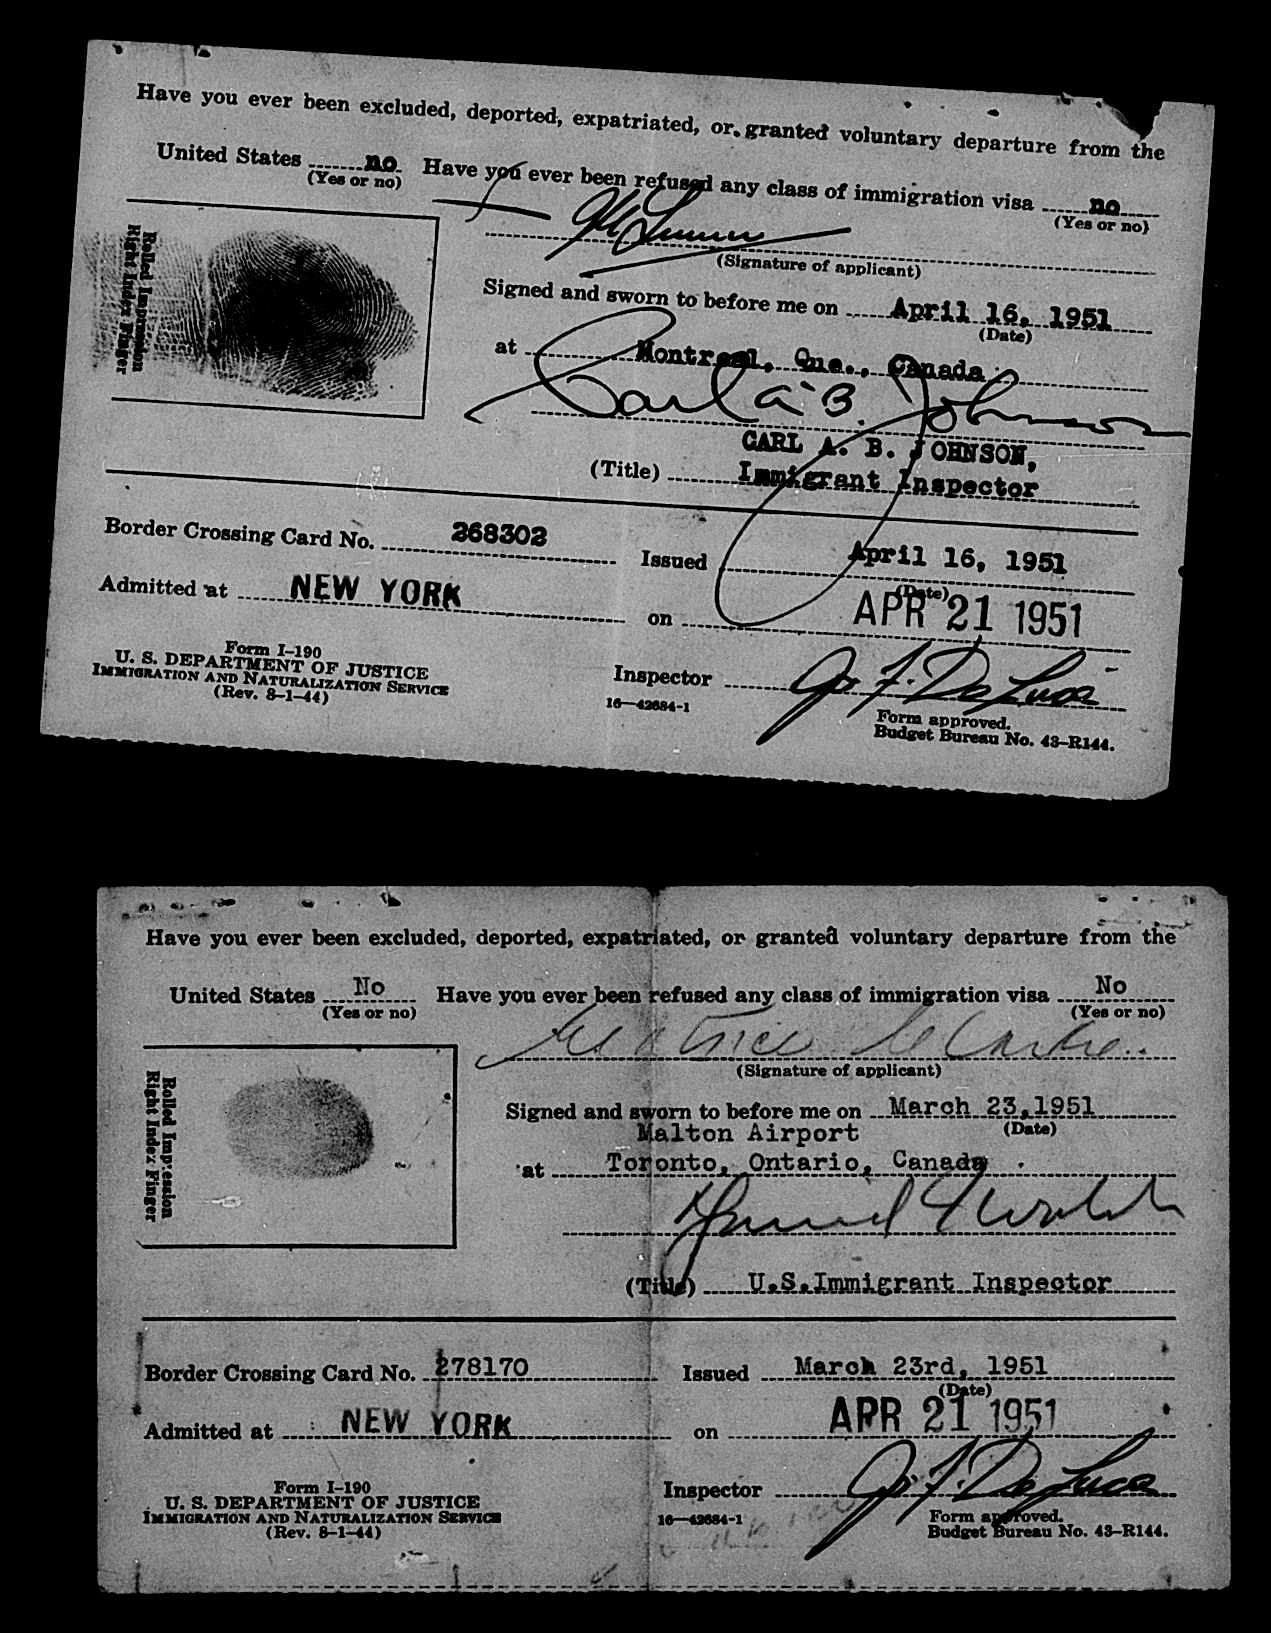 Have you ever been excluded, deported, expatriated, or granted voluntary departure from the
United States no Have you ever been refused any class of immigration visa no
(Yes or no) (Yes or no)
(Signature of applicant)
Rolled Impression
Right Index Finger
Signed and sworn to before me on April 16, 1951
(Date)
at Montreal, Que., Canada
Carl A B. Johnson
CARL A. B. JOHNSON,
(Title) Immigrant Inspector
Border Crossing Card No. 268302 Issued April 16, 1951
(Date)
Admitted at NEW YORK on APR 21 1951
Form I-190
U. S. DEPARTMENT OF JUSTICE
IMMIGRATION AND NATURALIZATION SERVICE
(Rev. 8-1-44)
Inspector Jo. F. De Luca
16—42684-1
Form approved.
Budget Bureau No. 43-R144.
Have you ever been excluded, deported, expatriated, or granted voluntary departure from the
United States No Have you ever been refused any class of immigration visa No
(Yes or no) (Yes or no)
Beatrice
(Signature of applicant)
Rolled Impression
Right Index Finger
Signed and sworn to before me on March 23,1951
(Date)
Malton Airport
at Toronto, Ontario, Canada
(Title) U.S.Immigrant Inspector
Border Crossing Card No. 278170 Issued March 23rd, 1951
(Date)
Admitted at NEW YORK on APR 21 1951
Form I-190
U. S. DEPARTMENT OF JUSTICE
IMMIGRATION AND NATURALIZATION SERVICE
(Rev. 8-1-44)
Inspector Jo. F. De Luca
16—42684-1
Form approved.
Budget Bureau No. 43-R144.